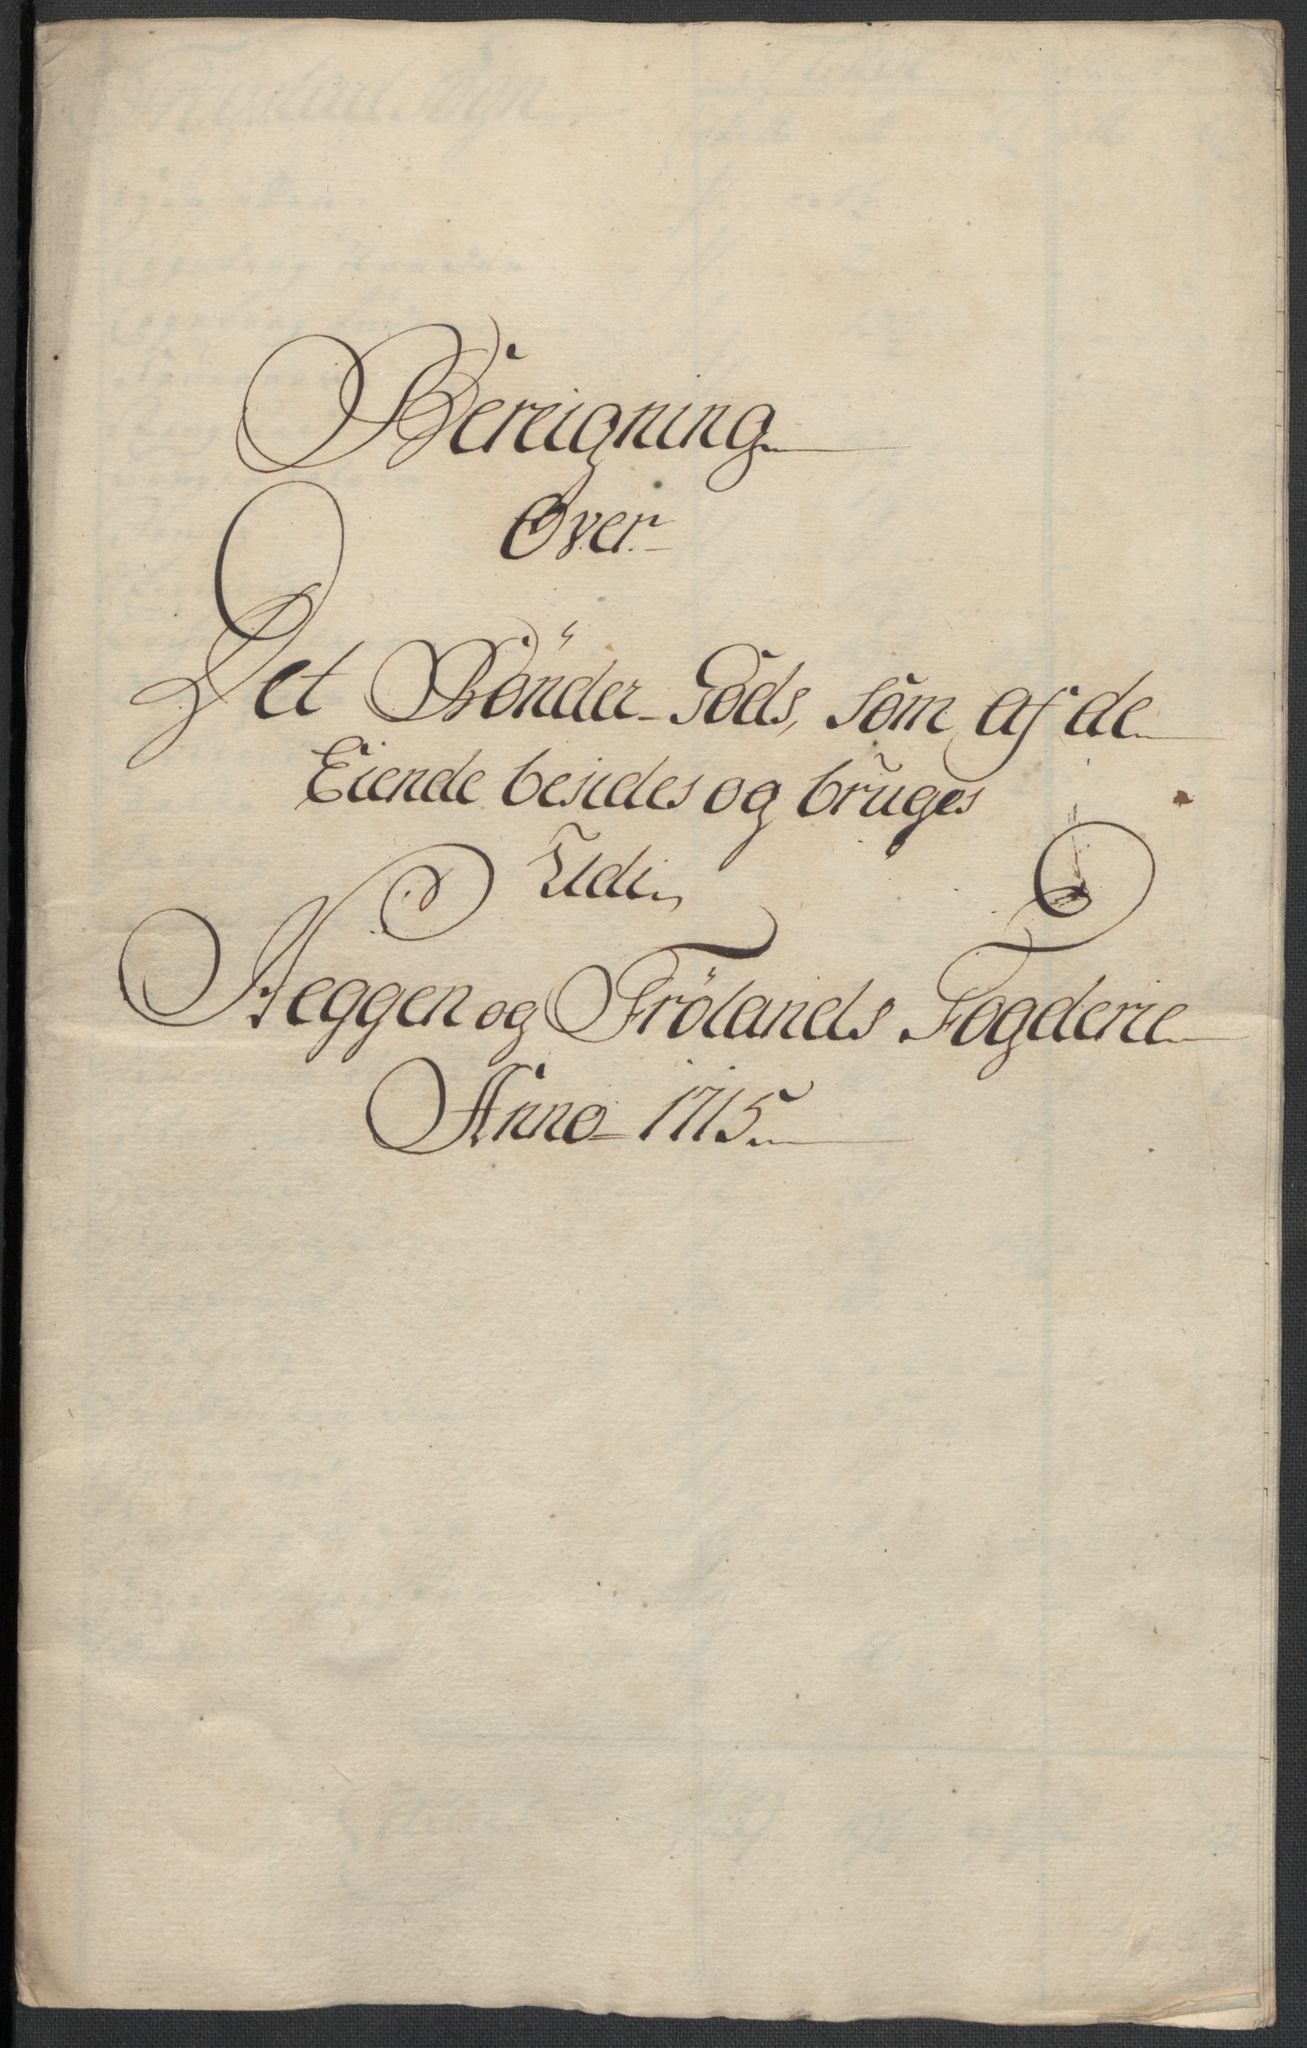 Bereigning
Over
Det Bönder-Gods, som af de
Eiende besides og bruges
Udi
Heggen og Frölands Fogderie
Anno 1715